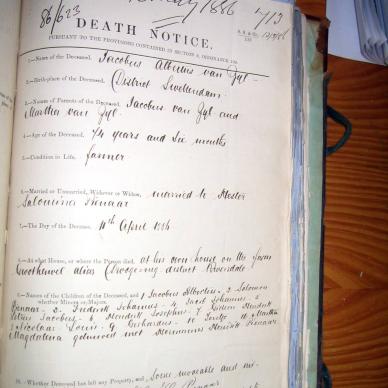 86/623
1886
713
DEATH NOTICE,
PURSUANT TO THE PROVISIONS CONTAINED IN SECTION 9, ORDINANCE 104.
1.—Name of the Deceased. Jacobus Albertus van Zyl
2.—Birth-place of the Deceased. District Swellendam
3.—Names of Parents of the Deceased. Jacobus van Zyl and
Martha van Zyl
4.—Age of the Deceased. 74 years and six months
5.—Condition in Life. farmer
6.—Married or Unmarried, Widower or Widow, married to Hester
Salomina Pienaar
7.—The Day of the Decease. April 1886
8.—At what House, or where the Person died, at his own house on the farm
alias district Riversdale
9.—Names of the Children of the Deceased, and whether Minors or Majors. 1 Jacobus Albertus - 2 Salomon
Pienaar - 3 Frederik Johannes - 4 Jacob Johannes - 5
Petrus Jacobus - 6 Hendrik Josephus - 7 Willem Hendrik
8 Nicolaas Louis - 9 Gerhardus - 10 - 11 Martha
Magdalena met Hermanus Hendrik Pienaar
10.—Whether Deceased has left any Property, and Some movable and